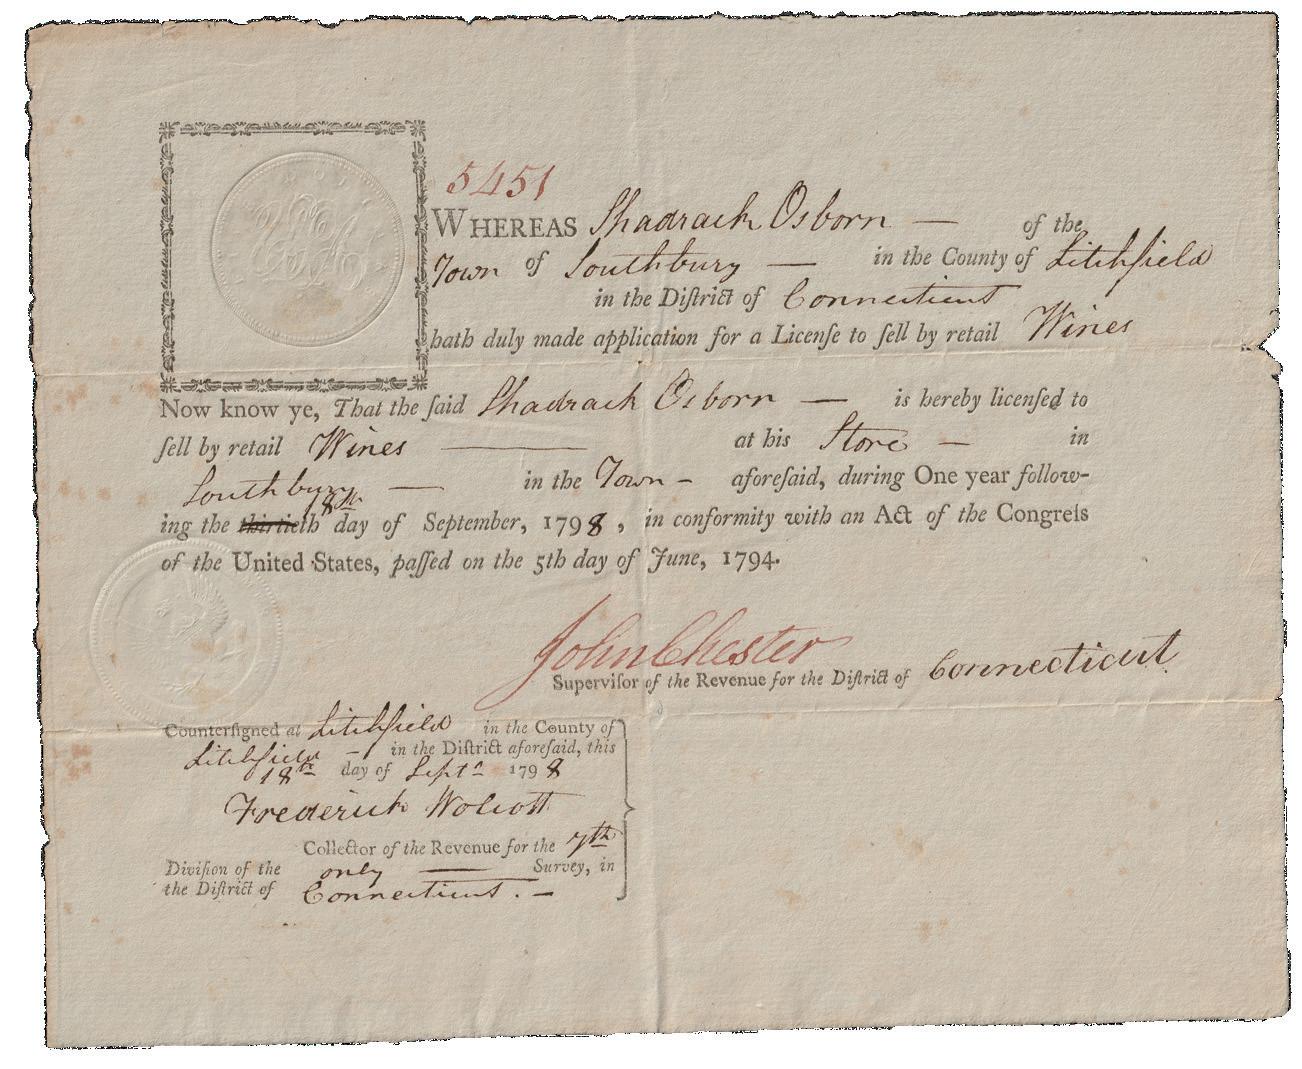 5451
WHEREAS Shadrach Osborn — of the
Town of Southbury — in the County of Litchfield
in the Diſtrict of Connecticut
hath duly made application for a Licenſe to ſell by retail Wines
Now know ye, That the ſaid Shadrach Osborn — is hereby licenſed to
ſell by retail Wines — at his Store — in
Southbury — in the Town - aforeſaid, during One year follow-
18th
ing the thirtieth day of September, 1798, in conformity with an Act of the Congreſs
of the United States, paſſed on the 5th day of June, 1794.
John Chester
Superviſor of the Revenue for the Diſtrict of Connecticut
Counterſigned at Litchfield in the County of
Litchfield — in the Diſtrict aforeſaid, this
18th day of Septr 1798
Frederick Wolcott
Collector of the Revenue for the 7th
Diviſion of the only — Survey, in
the Diſtrict of Connecticut. —